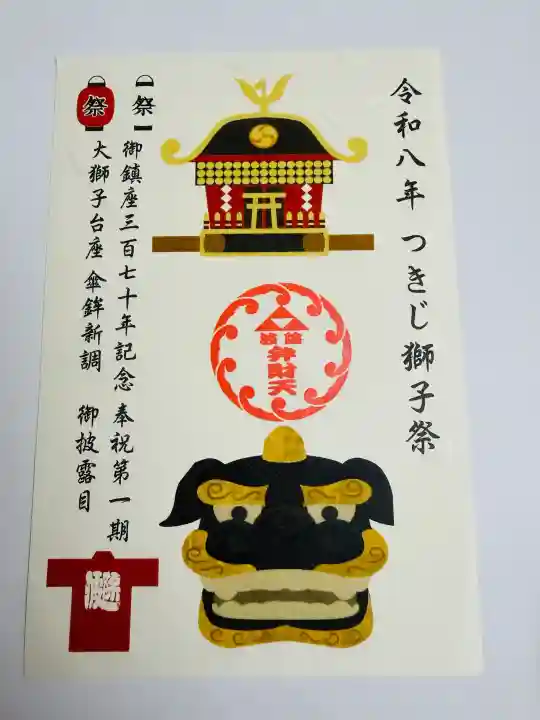 令和八年 つきじ獅子祭
祭
御鎮座三百七十年記念 奉祝第一期
祭
大獅子台座 傘鉾新調 御披露目
弁財天